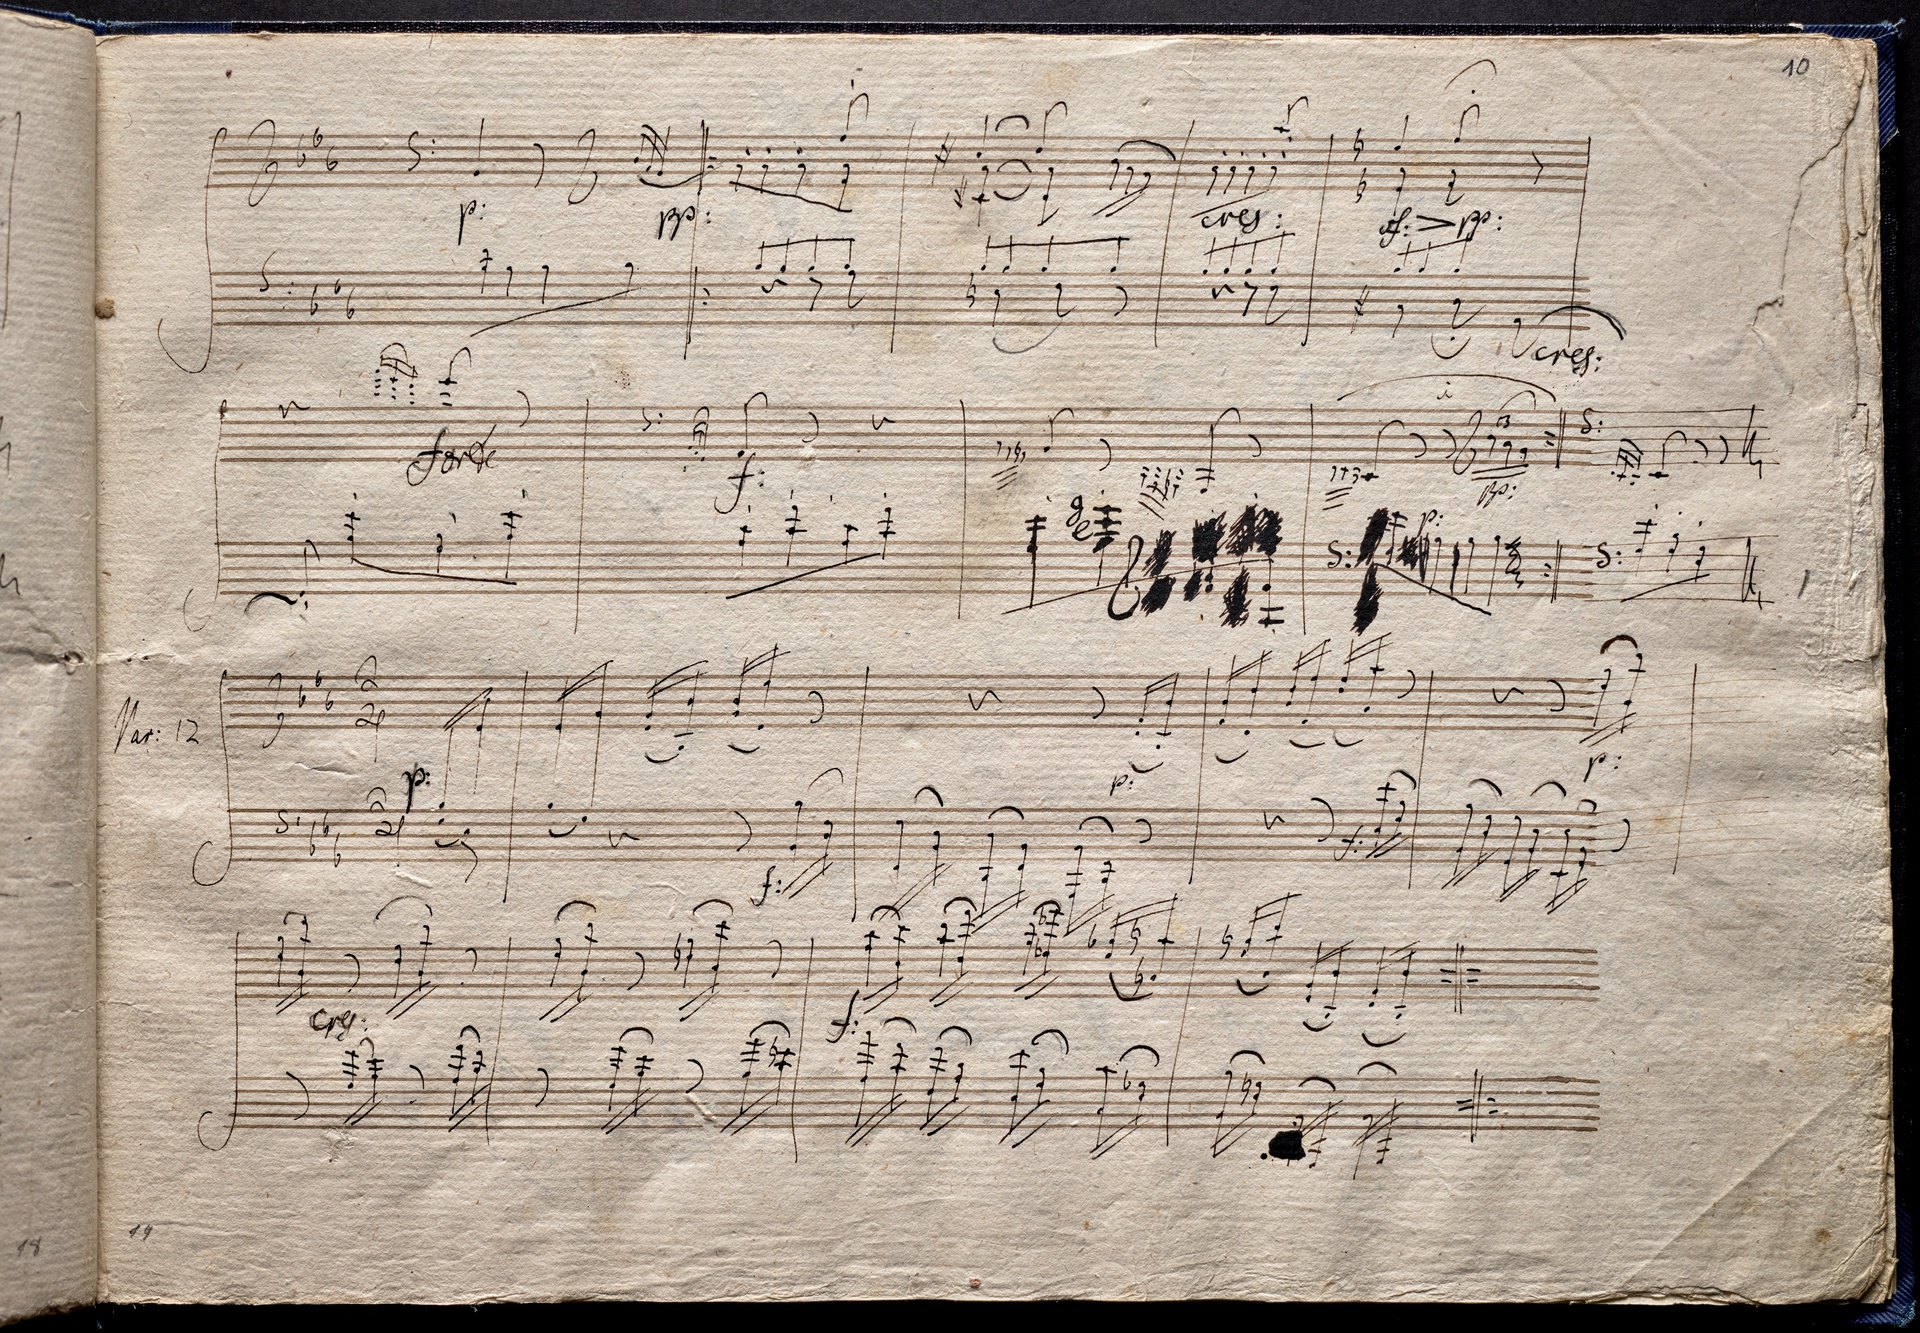 10
p: pp: cres: sf: pp:
cres:
forte f: pp:
ge p:
Var: 12 2/4
p: p: p:
2/4 f: f:
cres: f:
18 19